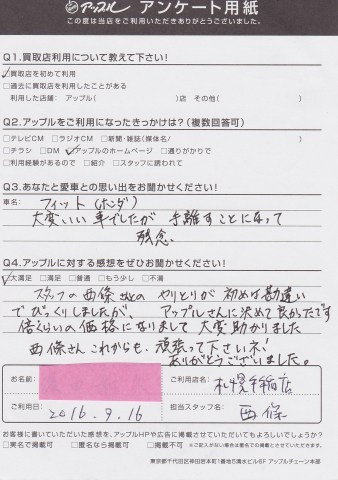 アップル アンケート用紙
この度は当店をご利用いただきありがとうございました。
Q1.買取店利用について教えて下さい!
☑買取店を初めて利用
□過去に買取店を利用したことがある
利用した店舗: アップル( )店 その他( )
Q2.アップルをご利用になったきっかけは?(複数回答可)
□テレビCM □ラジオCM □新聞・雑誌(媒体名/ )
□チラシ □DM ☑アップルのホームページ □通りがかりで
□利用経験があるので □紹介 □スタッフに誘われて
Q3.あなたと愛車との思い出をお聞かせください!
車名: フィット(ホンダ)
大変いい車でしたが 手離すことになって
残念
Q4.アップルに対する感想をぜひお聞かせください!
☑大満足 □満足 □普通 □もう少し □不満
スタッフの西條さんとのやりとりが初めは勘違い
でびっくりしましたが、アップルさんに決めて良かったです
倍くらいの価格になりまして大変助かりました
西條さんこれからも頑張って下さいネ!
ありがとうございました。
お名前:
ご利用店名: 札幌手稲店
ご利用日: 2016.9.16
担当スタッフ名: 西條
お客様に書いていただいた感想を、アップルHPや広告に掲載させていただいてもよろしいでしょうか?
□実名で掲載可 □匿名なら掲載可 □掲載不可 ※ご記入がない場合は匿名での掲載とさせていただきます。
東京都千代田区神田岩本町1番地5清水ビル6F アップルチェーン本部